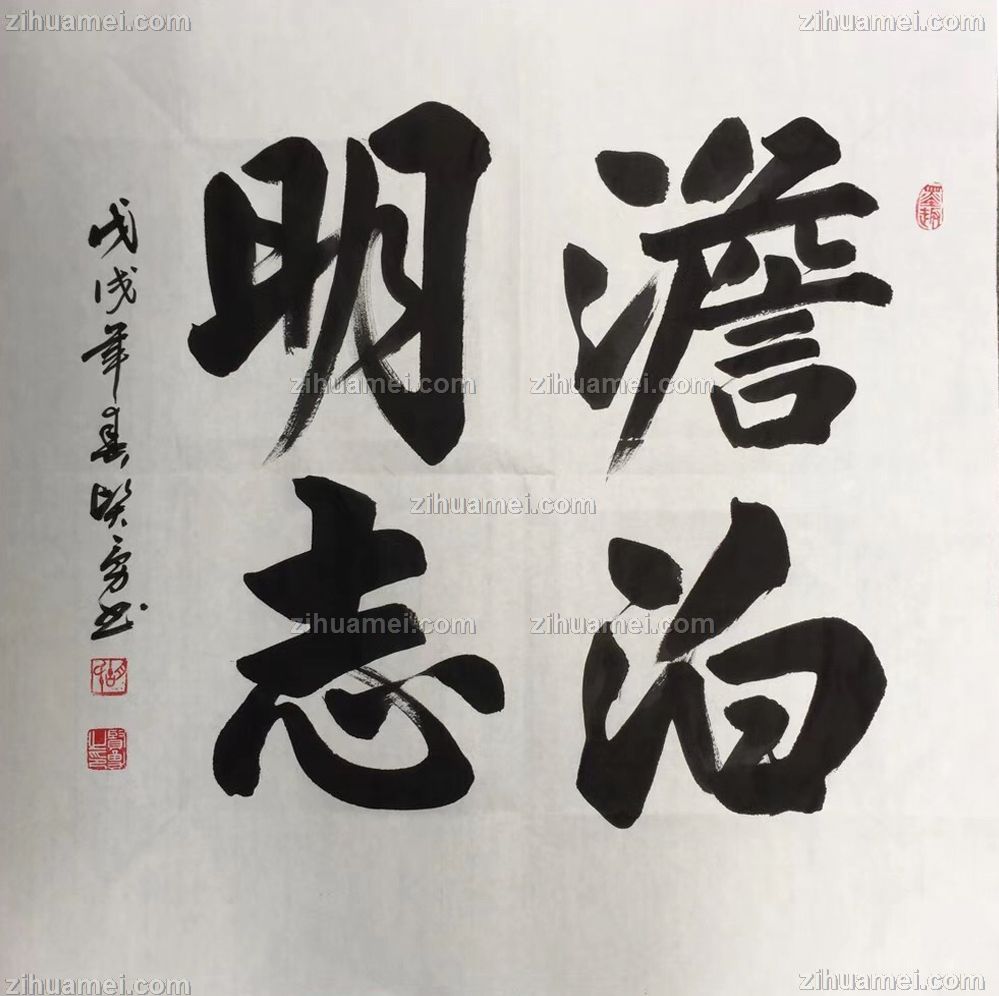 澹泊
明志
戊戌年春贤勇书
贤勇之印
zihuamei.com
zihuamei.com
zihuamei.com
zihuamei.com
zihuamei.com
zihuamei.com
zihuamei.com
zihuamei.com
zihuamei.com